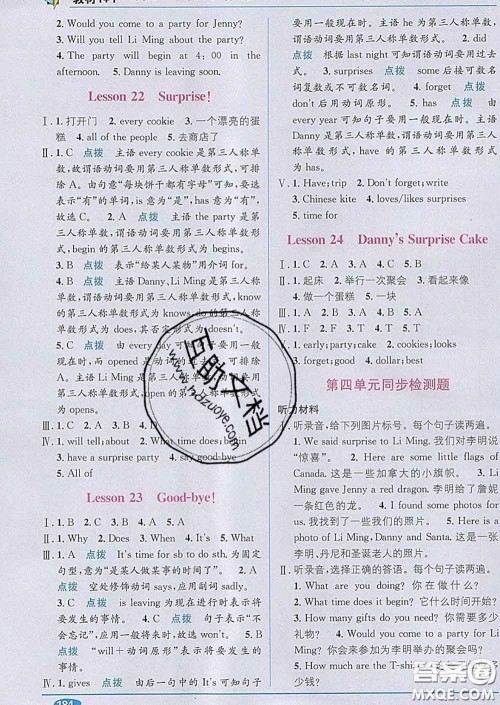 2. Would you come to a party for Jenny?
3. Will you tell Li Ming about the party?
4. The party will begin at 4:00 in the
afternoon. 5. Danny is leaving soon.
Lesson 22 Surprise!
Ⅰ. 1. 打开门 2. every cookie 3. 一个漂亮的蛋
糕 4. all of the people 5. 去商店了
Ⅱ. 1. C 点拨 主语 every cookie 是第三人称单
数,故谓语动词要用第三人称单数形式,可排
除A。由句意“每块饼干都有字母”可知,要选
表示“有”的单词,is 意为“是”,has 意为“有”,
故选C。 2. A 点拨 主语 the party 是第
三人称单数,谓语动词要用第三人称单数形
式,begin 的第三人称单数形式为 begins。
3. B 点拨 表示“给某人某物”用介词 for。
4. B 点拨 主语 Danny, Li Ming 是第三人称
单数,谓语动词要用第三人称单数形式,know
的第三人称单数形式为 knows, do 的第三人称单
数形式为 does,其否定形式为 doesn't。
形式为 opens。
Ⅲ. 1. will; tell; about 2. What time does; begin
3. have a surprise party 4. say good-bye
5. All of
Lesson 23 Good-bye!
Ⅰ. 1. C 2. B 3. A 4. A 5. A
Ⅱ. 1. Why 2. Does 3. When 4. It's 5. What
Ⅲ. 1. A 点拨 It's time for sb to do sth. 为固定
句型,意为“是某人做某事的时间了”。 2. A
点拨 空处修饰动词 says,应用副词 sadly。
3. C 点拨 is leaving 为现在进行时表示将
要发生的事件。 4. C 点拨 句子表示“不
会忘记”,应用一般将来时,故填 won't。 5. B
点拨 “will+动词原形”表示将要发生的
事情。
Ⅳ. 1. gives 点拨 由后一句中的 It 可知句子
184
要用一般现在时。主语 he 为第三人称单数,
谓语动词要用第三人称单数形式。 2. did
点拨 根据 last night 可知谓语动词要用过去
式。 3. surprises 点拨 some 后接可数名
词复数或不可数名词。 4. forget 点拨
don't 后用动词原形。 5. has 点拨 由
every year 可知句子要用一般现在时。主语
Danny 是第三人称单数,谓语动词要用第三
人称单数形式。
Ⅴ. 1. Have; trip 2. Don't forget; write
3. Chinese kite 4. loves/likes surprises
5. time for
Lesson 24 Danny's Surprise Cake
Ⅰ. 1. C 2. A 3. C 4. B 5. A
Ⅱ. 1. 起床 2. 举行一次聚会 3. 看起来像
4. 做一个蛋糕 5. 一块
Ⅲ. 1. F 2. F 3. T 4. T 5. T
Ⅳ. 1. early; party; cake 2. Cookies; looks
3. piece; for 4. good 5. dollar; best
第四单元同步检测题
听力材料
一、听录音,给下列图片标号。每个句子读两遍。
1. We said surprise to Li Ming. 我们对李明说
“惊喜”。 2. Here are some little flags of
Canada. 这是一些加拿大的小旗帜。 3. Li
Ming gave Jenny a red dragon. 李明给了詹妮
一条红色的龙。 4. I found some photos for
us. 我找到了一些我们的照片。 5. Here are
photos of Li Ming, Danny and Santa. 这里有
李明、丹尼和圣诞老人的照片。
二、听录音,选择正确的答语。每个句子读两遍。
1. What are you doing? 你在做什么?
2. What time does it begin? 它什么时间开始?
3. How many gifts do you need? 你需要多少
礼物? 4. Would you come to a party for Li
5. How much are the T-shir
少钱?
互助文档
www.hdzuoye.com
答案圈
MXQE.COM